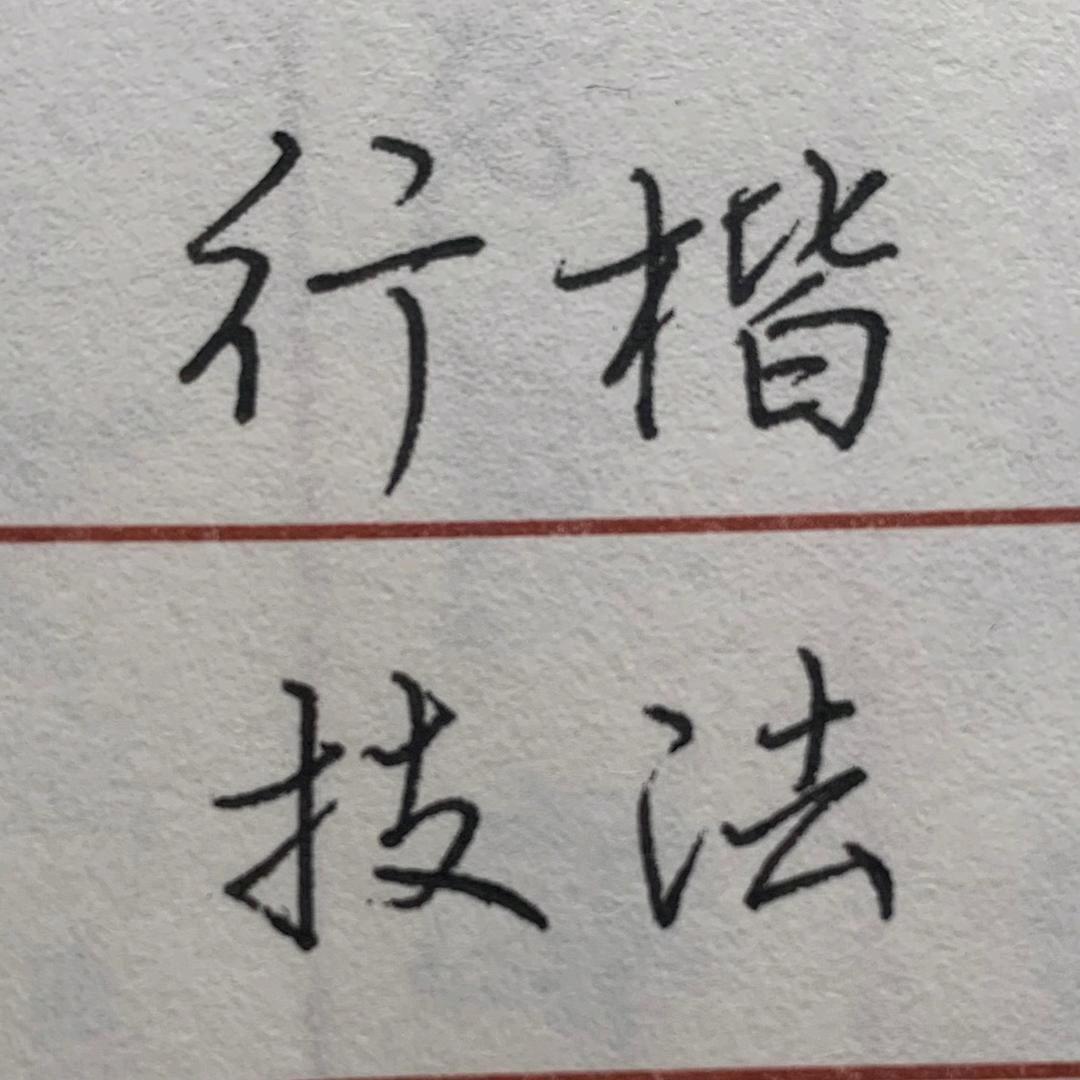 行楷
技法